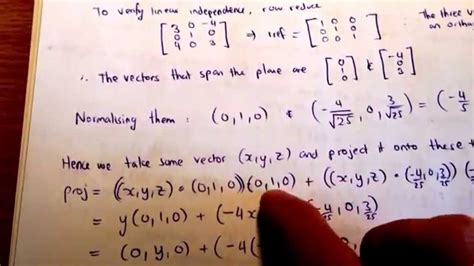 To verify linear independence, row reduce
[3 0 -4
0 1 0
4 0 3] ⇒ rref = [1 0 0
0 1 0
0 0 1]
The three v
an ortho
∴ The vectors that span the plane are [0 1 0] & [-4 0 3]
Normalising them: (0,1,0) & (-4/√25, 0, 3/√25) = (-4/5
Hence we take some vector (x,y,z) and project it onto these t
proj = ((x,y,z) • (0,1,0))(0,1,0) + ((x,y,z) • (-4/25, 0, 3/25))
= y(0,1,0) + (-4x -4/25, 0, 3/25)
= (0,y,0) + (-4(